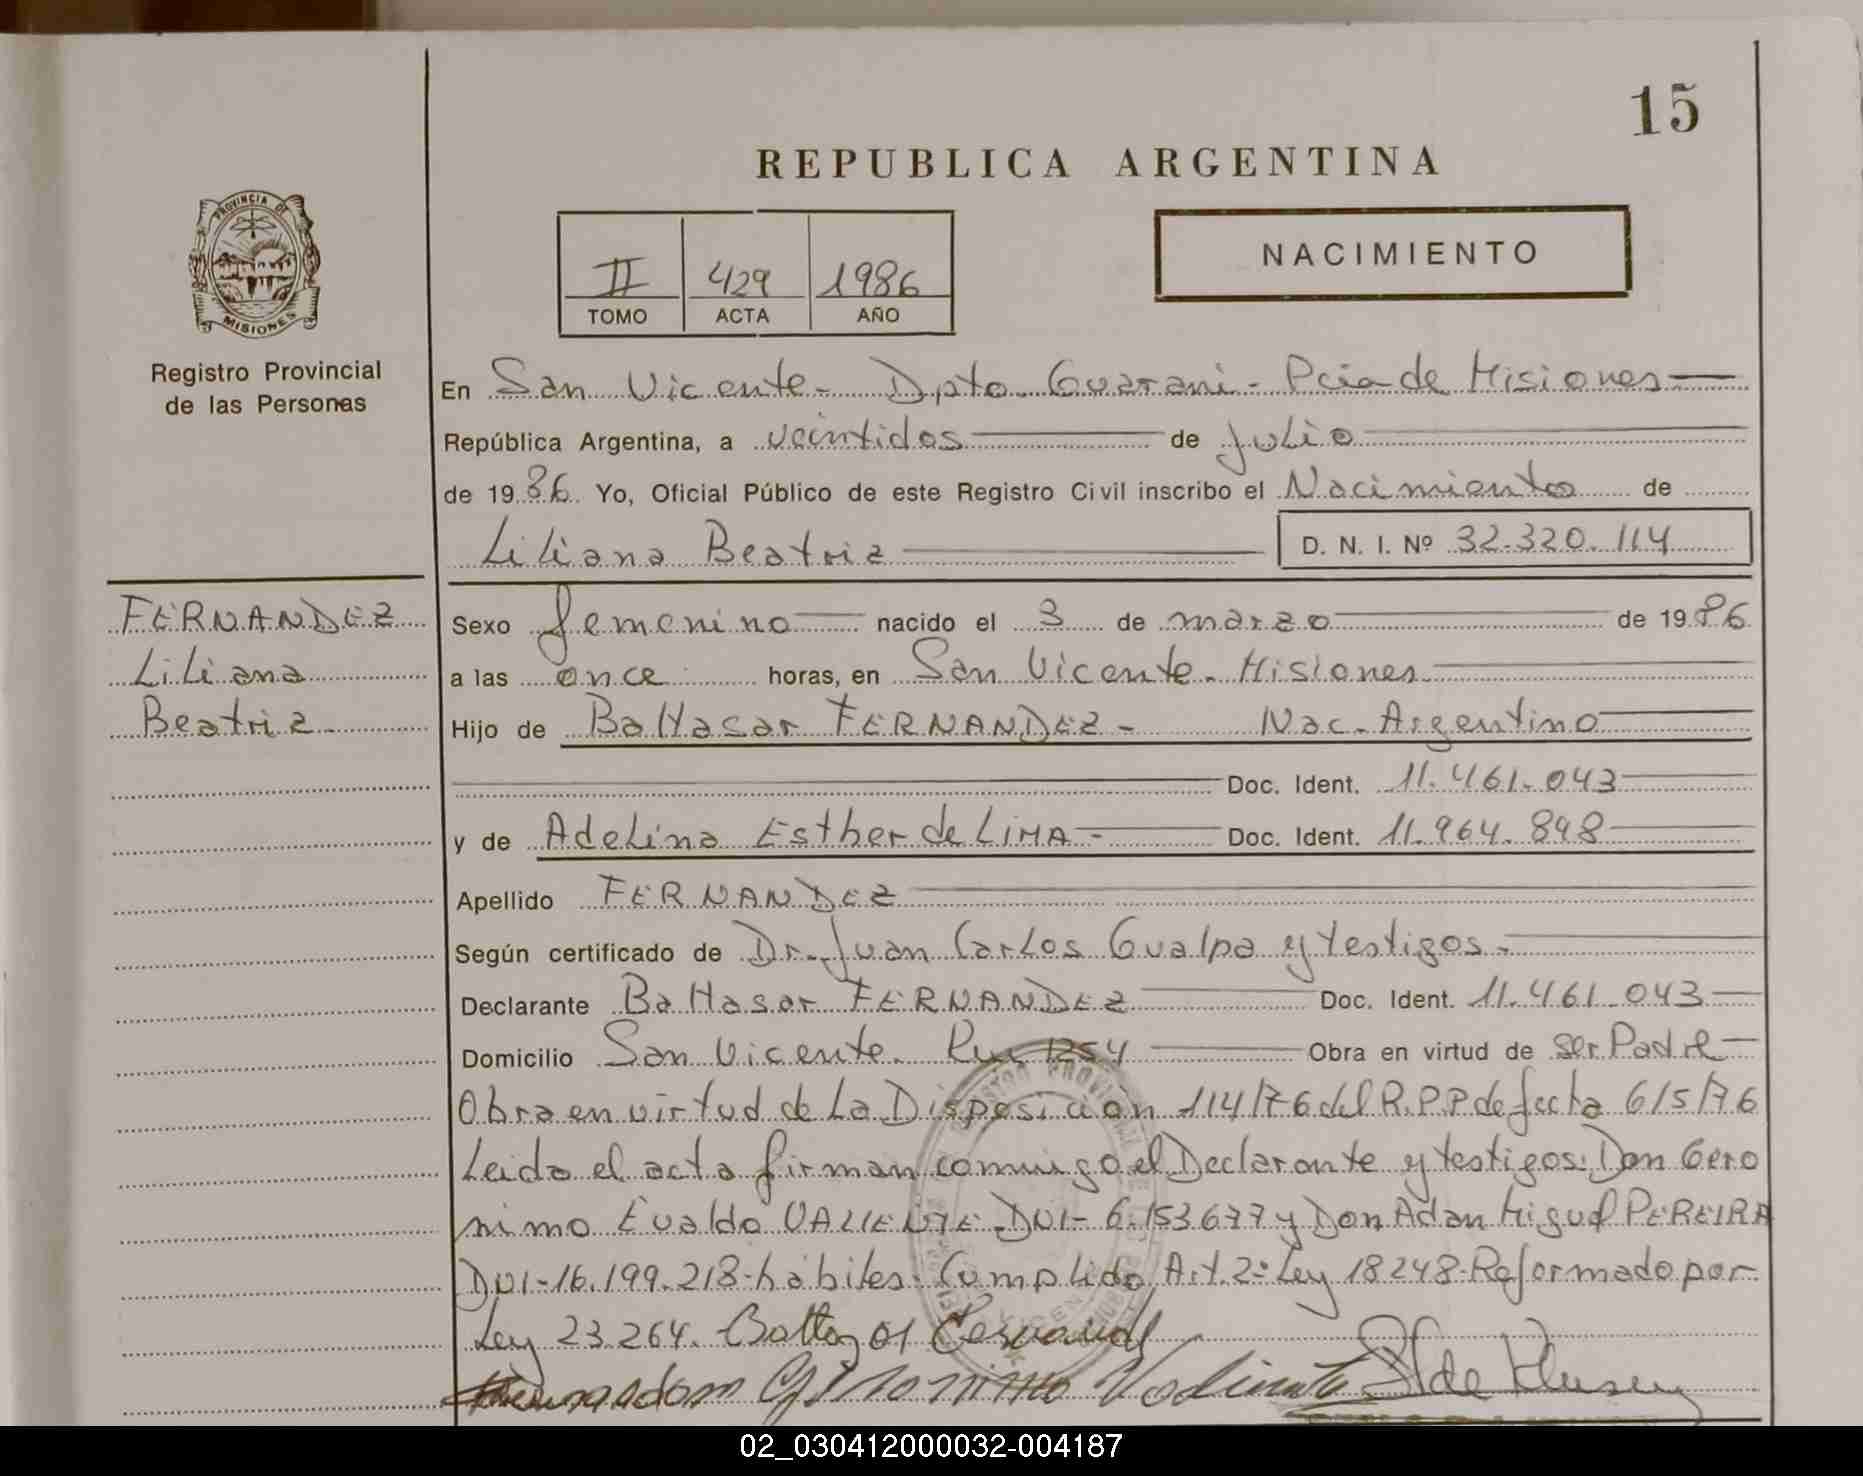 15
REPUBLICA ARGENTINA
PROVINCIA DE
MISIONES
Registro Provincial
de las Personas
II 429 1986
TOMO ACTA AÑO
NACIMIENTO
En San Vicente - Dpto. Guarani - Pcia de Misiones
República Argentina, a veintidos de julio
de 1986 Yo, Oficial Público de este Registro Civil inscribo el Nacimiento de
Liliana Beatriz D. N. I. Nº 32.320.114
FERNANDEZ
Liliana
Beatriz
Sexo femenino nacido el 3 de marzo de 1986
a las once horas, en San Vicente - Misiones
Hijo de Baltasar FERNANDEZ - Nac. Argentino
Doc. Ident. 11.461.043
y de Adelina Esther de LIMA - Doc. Ident. 11.964.898
Apellido FERNANDEZ
Según certificado de Dr. Juan Carlos Gualpa y testigos -
Declarante Baltasar FERNANDEZ Doc. Ident. 11.461.043
Domicilio San Vicente. 1254 Obra en virtud de ser Padre
Obra en virtud de la Disposicion 114/76 del R.P.P de fecha 6/5/76
Leida el acta firman conmigo el Declarante y testigos: Don Gero
nimo Evaldo VALIENTE - DNI - 6.153.677 y Don Adan Miguel PEREIRA
DNI - 16.199.218 - habiles. Cumplido Art. 2º Ley 18248 - Reformado por
Ley 23.264.
02_030412000032-004187